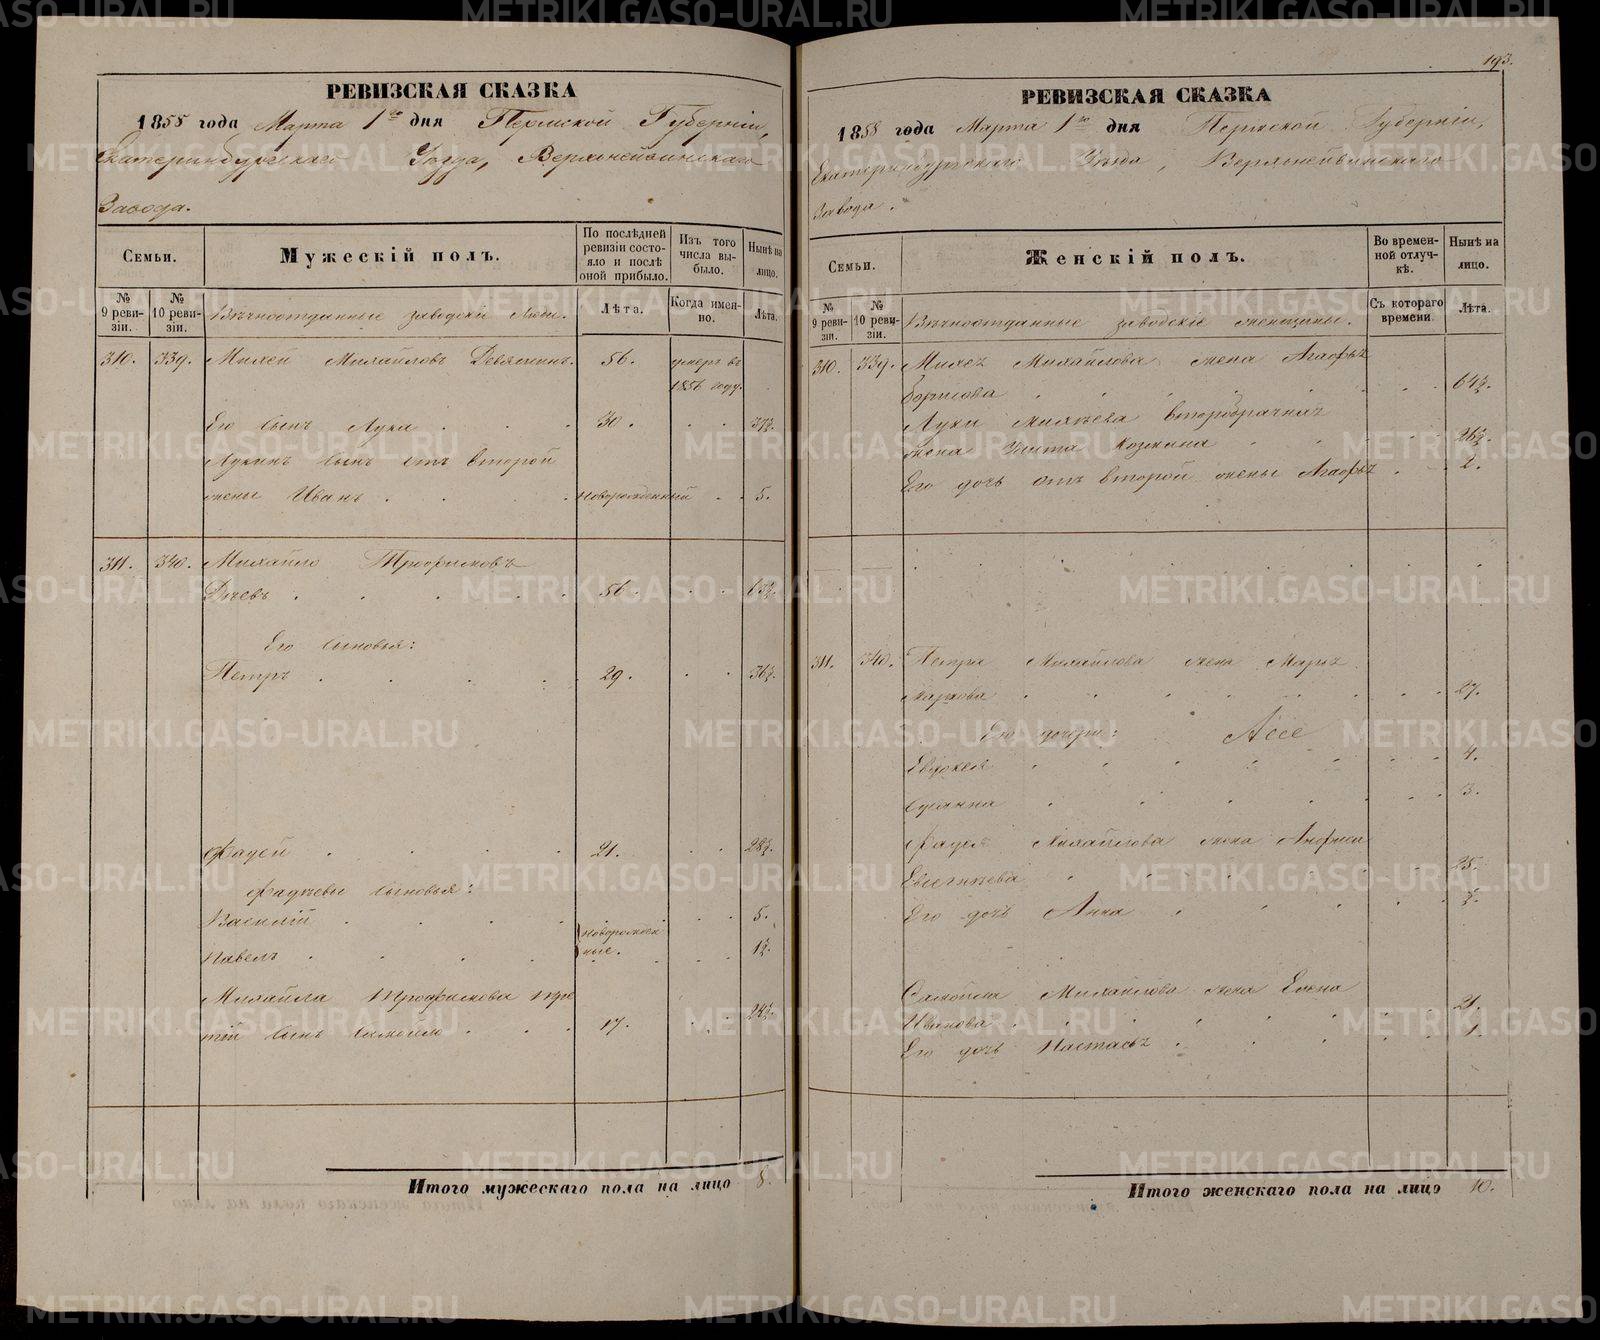 193.
РЕВИЗСКАЯ СКАЗКА
1858 года Марта 1го дня Пермской Губерніи,
Екатеринбургскаго Уѣзда, Верхнейвинскаго
Завода.
Семьи.
Мужескій полъ.
По послѣдней ревизіи состояло и послѣ оной прибыло.
Изъ того числа выбыло.
Нынѣ на лицо.
№ 9 ревизіи.
№ 10 ревизіи.
Вѣчноотданные заводскіе люди.
Лѣта.
Когда именно.
Лѣта.
310. 339. Михей Михайловъ 56. умеръ въ
1856 году.
Его сынъ Лука 30. 37½.
Лукинъ сынъ отъ второй
жены Иванъ новорожденный 5.
311. 340. Михайло Трофимовъ
56. 63½.
Его сыновья:
Петръ 29. 36½.
Фадей 21. 28½.
Фадѣевы сыновья:
Василій 5.
новорожден
Павелъ ные. 1½.
Михайла Трофимова тре
тій сынъ Самойло 17. 24½.
Итого мужескаго пола на лицо 8.
РЕВИЗСКАЯ СКАЗКА
1858 года Марта 1го дня Пермской Губерніи,
Екатеринбургскаго Уѣзда, Верхнейвинскаго
Завода.
Семьи.
Женскій полъ.
Во временной отлучкѣ.
Нынѣ на лицо.
№ 9 ревизіи.
№ 10 ревизіи.
Вѣчноотданные заводскіе женщины.
Съ котораго времени
Лѣта.
310. 339. Михея Михайлова жена Агафья
Борисова 64½.
Луки Михѣева второбрачная
жена 26½.
Его дочь отъ второй жены Агафья 2.
311. 340. Петра Михайлова жена Марья
Маркова 27.
Его дочери:
Евдокея 4.
3.
Фадея Михайлова жена Анфиса
Евсегнѣева 25.
Его дочь Анна ½.
Самойла Михайлова жена Елена
Иванова 21.
Его дочь Настасья 1.
Итого женскаго пола на лицо 10.
METRIKI.GASO-URAL.RU